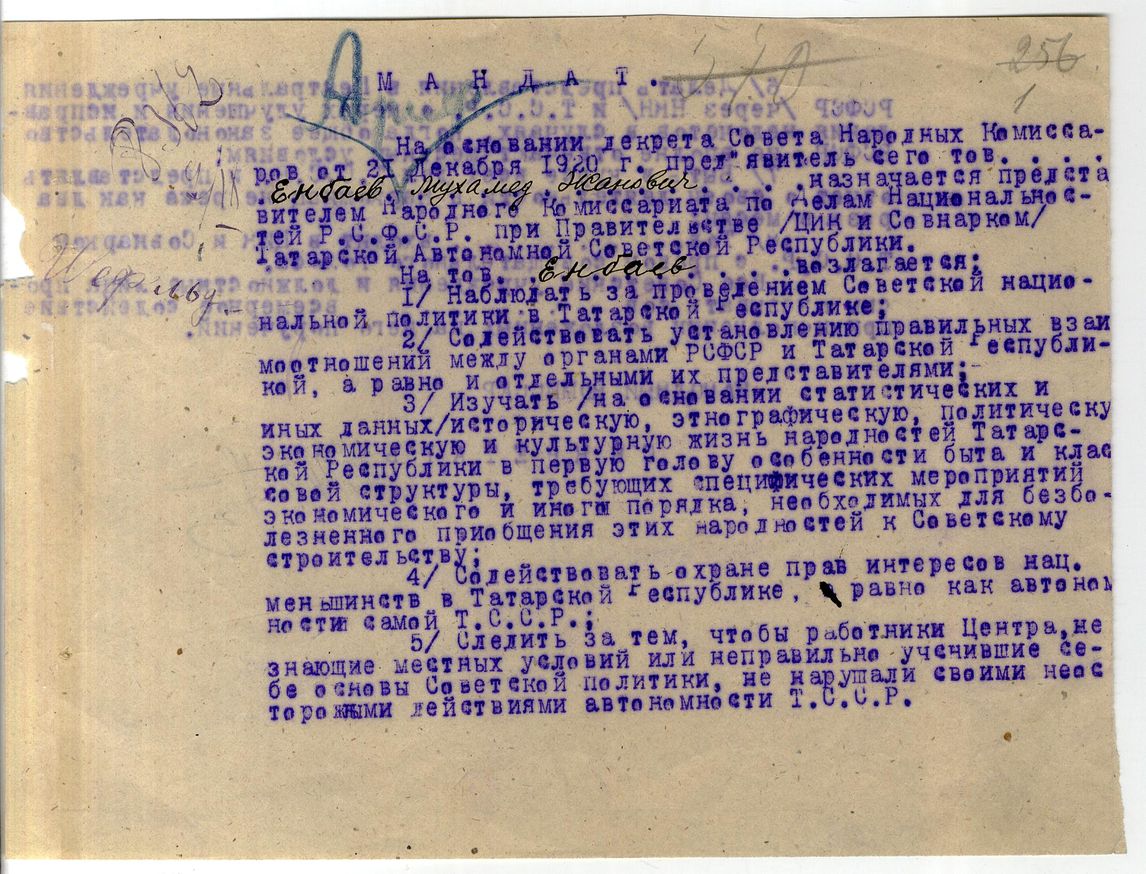 256
1
М А Н Д А Т .
На основании декрета Совета Народных Комисса-
ров от 21 Декабря 1920 г. пред"явитель сего тов. . . .
Енбаев Мухамед Жанович . . . .назначается предста
вителем Народного Комиссариата по Делам Националънос-
тей Р.С.Ф.С.Р. при Правительстве /ЦИК и Совнарком/
Татарской Автономной Советской Республики.
На тов. Енбаев . . .возлагается;
1/ Наблюдать за проведением Советской нацио-
нальной политики в Татарской Республике;
2/ Содействовать установлению правильных взаи
моотношений между органами РСФСР и Татарской Республи-
кой, а равно и отдельными их представителями;-
3/ Изучать /на основании статистических и
иных данных/историческую, этнографическую, политическу
экономическую и культурную жизнь народностей Татарс-
кой Республики в первую голову особенности быта и клас
совой структуры, требующих специфических мероприятий
экономического и иного порядка, необходимых для безбо-
лезненного приобщения этих народностей к Советскому
строительству;
4/ Содействовать охране прав интересов нац.
меньшинств в Татарской Республике, а равно как автоном
ности самой Т.С.С.Р.;
5/ Следить за тем, чтобы работники Центра,не
знающие местных условий или неправильно учсчившие се-
бе основы Советской политики, не нарушали своими неос
торожными действиями автономности Т.С.С.Р.